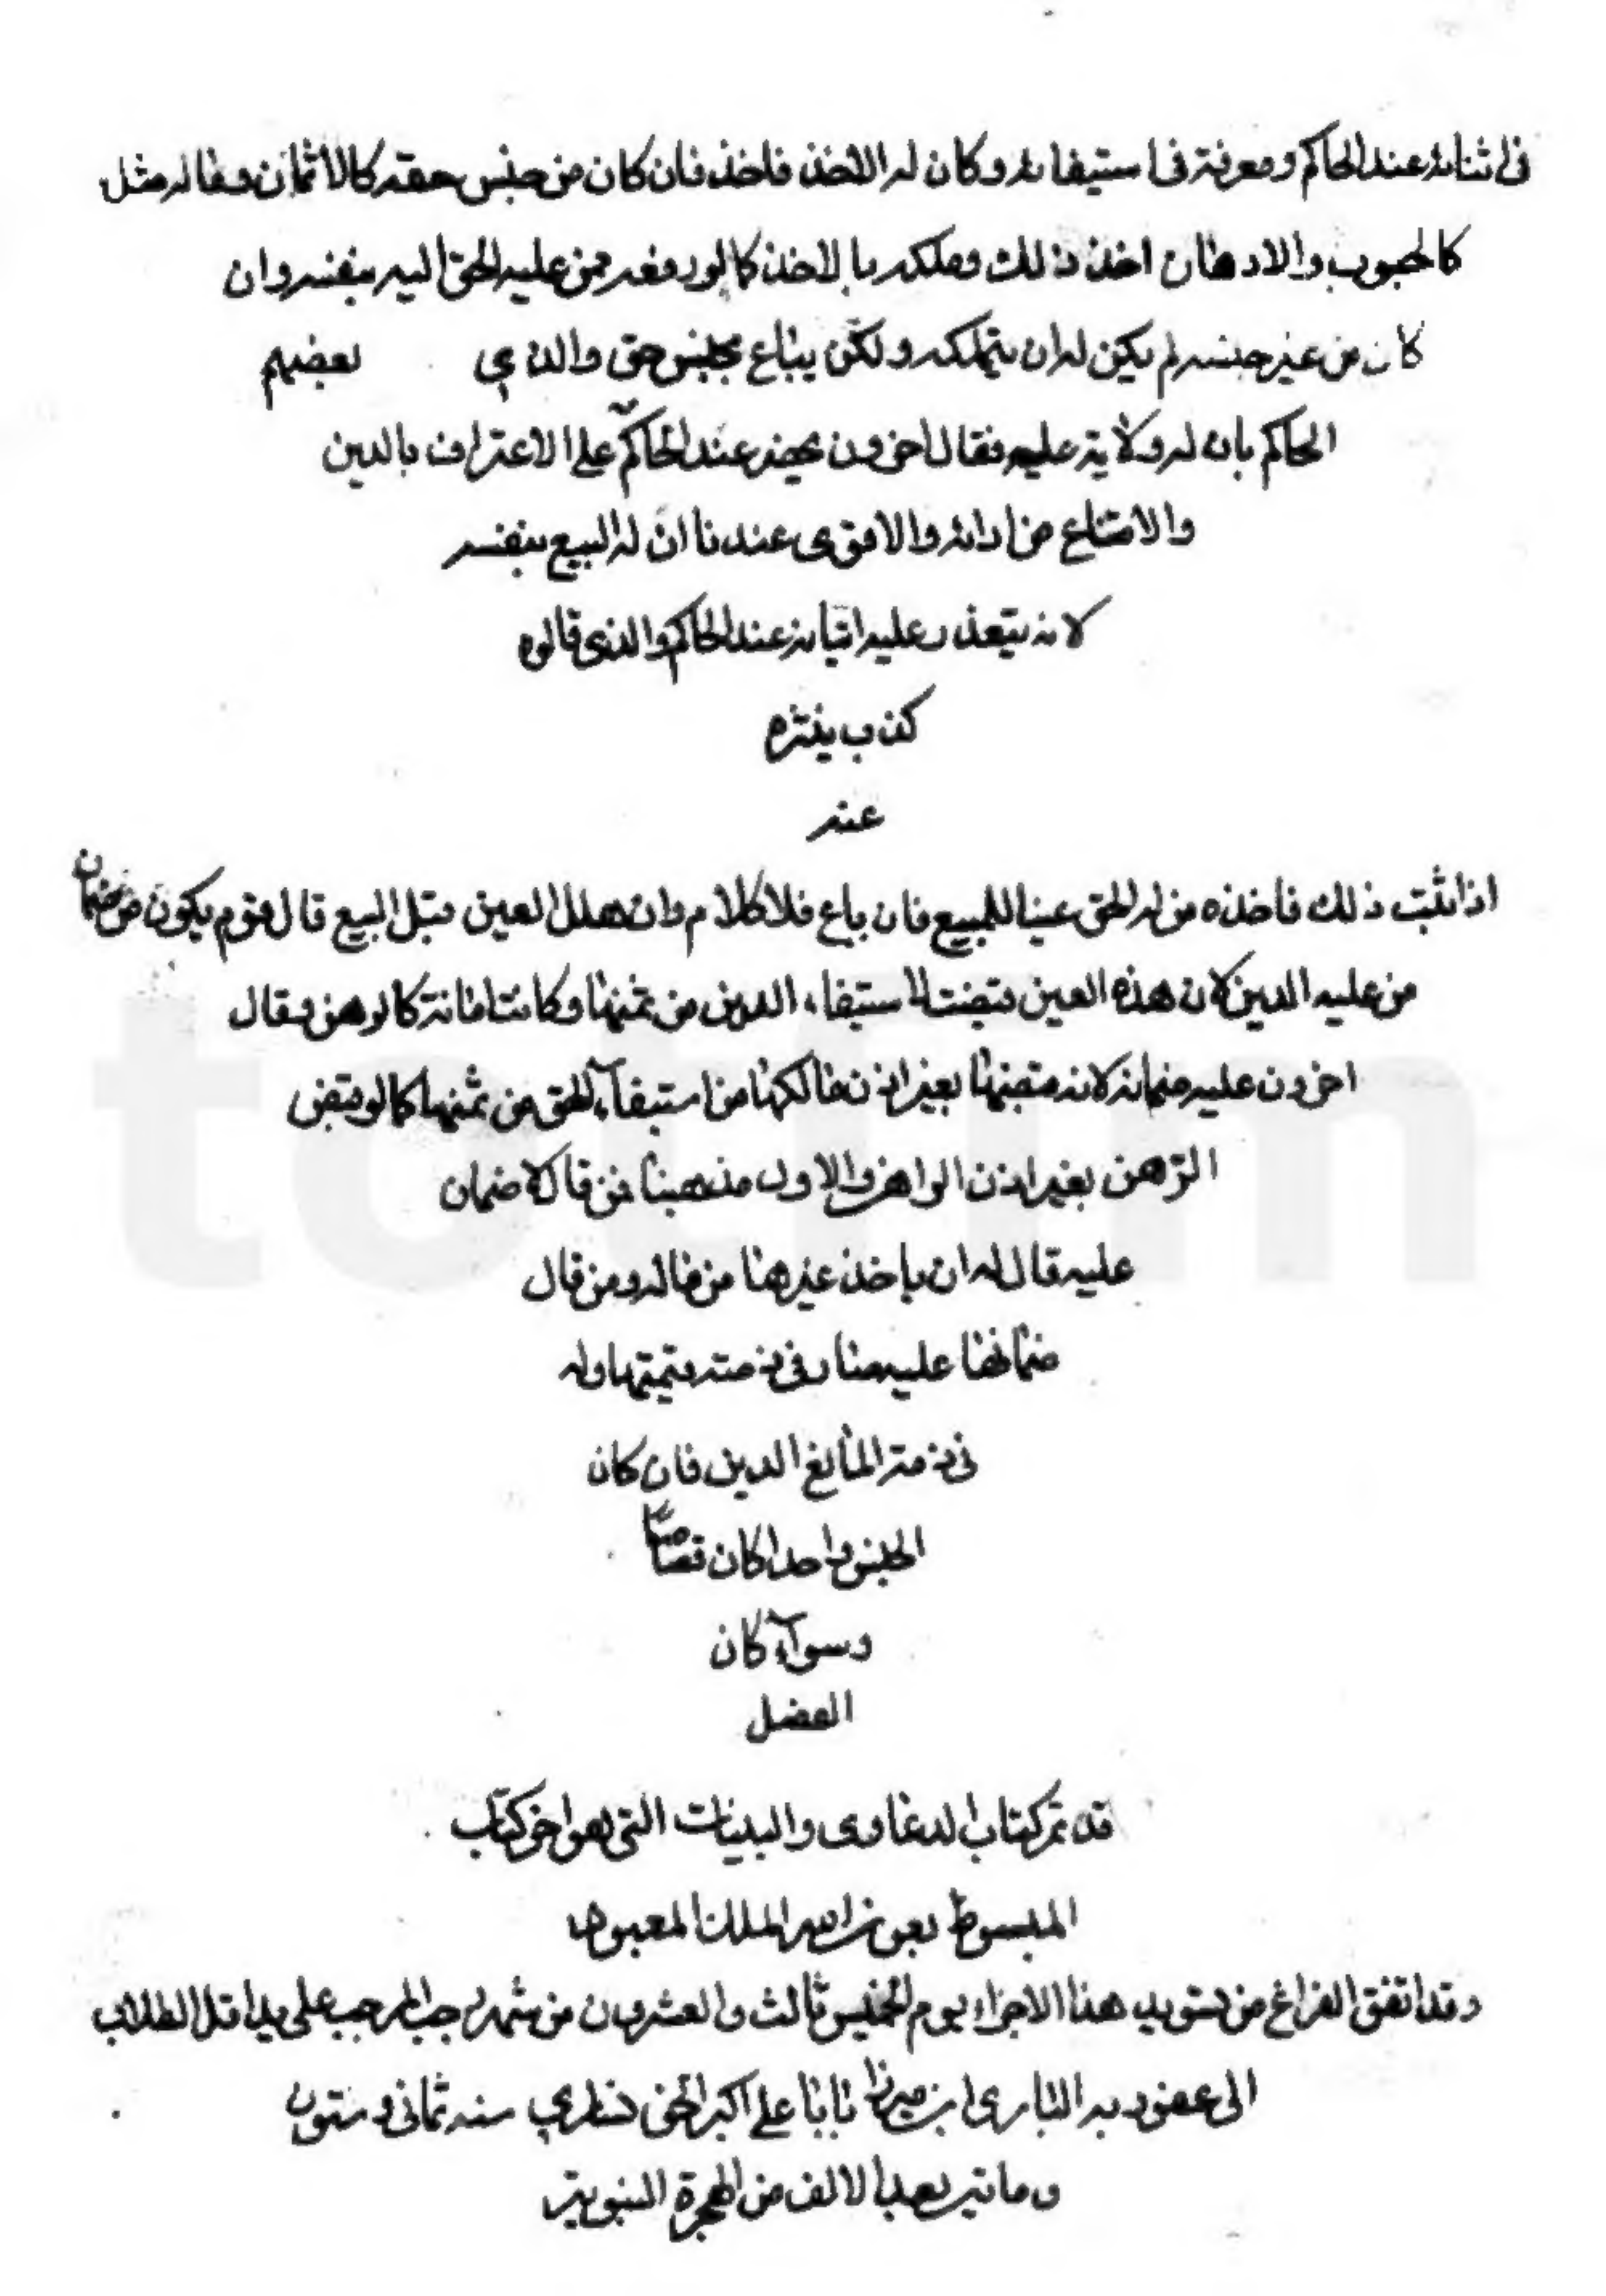 فى اثباته عند الحاكم ومعرفة فى استيفائه وكان له الاخذ فاخذ فان كان من جنس حقه كالاثمان وماله مثل
كالحبوب والادهان اخذ ذلك وملكه بالاخذ كما لو دفعه من عليه الحق اليه بنفسه وان
كان من غير جنسه لم يكن له ان يتملكه ولكن يباع بجنس حق والذي بعضهم
الحاكم بان له ولاية عليه فقال اخرون يحضر عند الحاكم على الاعتراف بالدين
والامتناع من ادائه والاقوى عندنا ان له البيع بنفسه
لانه يتعذر عليه اثباته عند الحاكم والذى قالوه
كذب يتنزه
عنه
اذا ثبت ذلك فاخذه من له الحق عينا للمبيع فان باع فلا كلام وان هلك العين قبل البيع قال قوم يكون من ضمان
من عليه الدين لان هذه العين قبضت لاستيفاء الدين من ثمنها وكانت امانة كالرهن وقال
اخرون عليه ضمانه لانه قبضها بغير اذن مالكها من استيفآء الحق من ثمنها كما لو قبض
الرّهن بغير اذن الراهن والاول مذهبنا فمن قال لا ضمان
عليه قال له ان ياخذ غيرها من ماله ومن قال
ضمانها عليه صار فى ذمته قيمتها وله
فى ذمة المانع الدين فان كان
الجنس واحدا كان قصاصّا
وسوآء كان
الفضل
قد تم كتاب الدعاوى والبينات التى هو اخر كتاب
المبسوط بعون الله الملك المعبود
وقد اتفق الفراغ من تسويد هذا الاجزاء يوم الخميس ثالث والعشرون من شهر رجب المرجب على يد اقل الطلاب
الى عفو ربه البارى ابن ميرزا بابا على اكبر سنه ثمانى وستون
وماتين بعد الالف من الهجرة النبوية